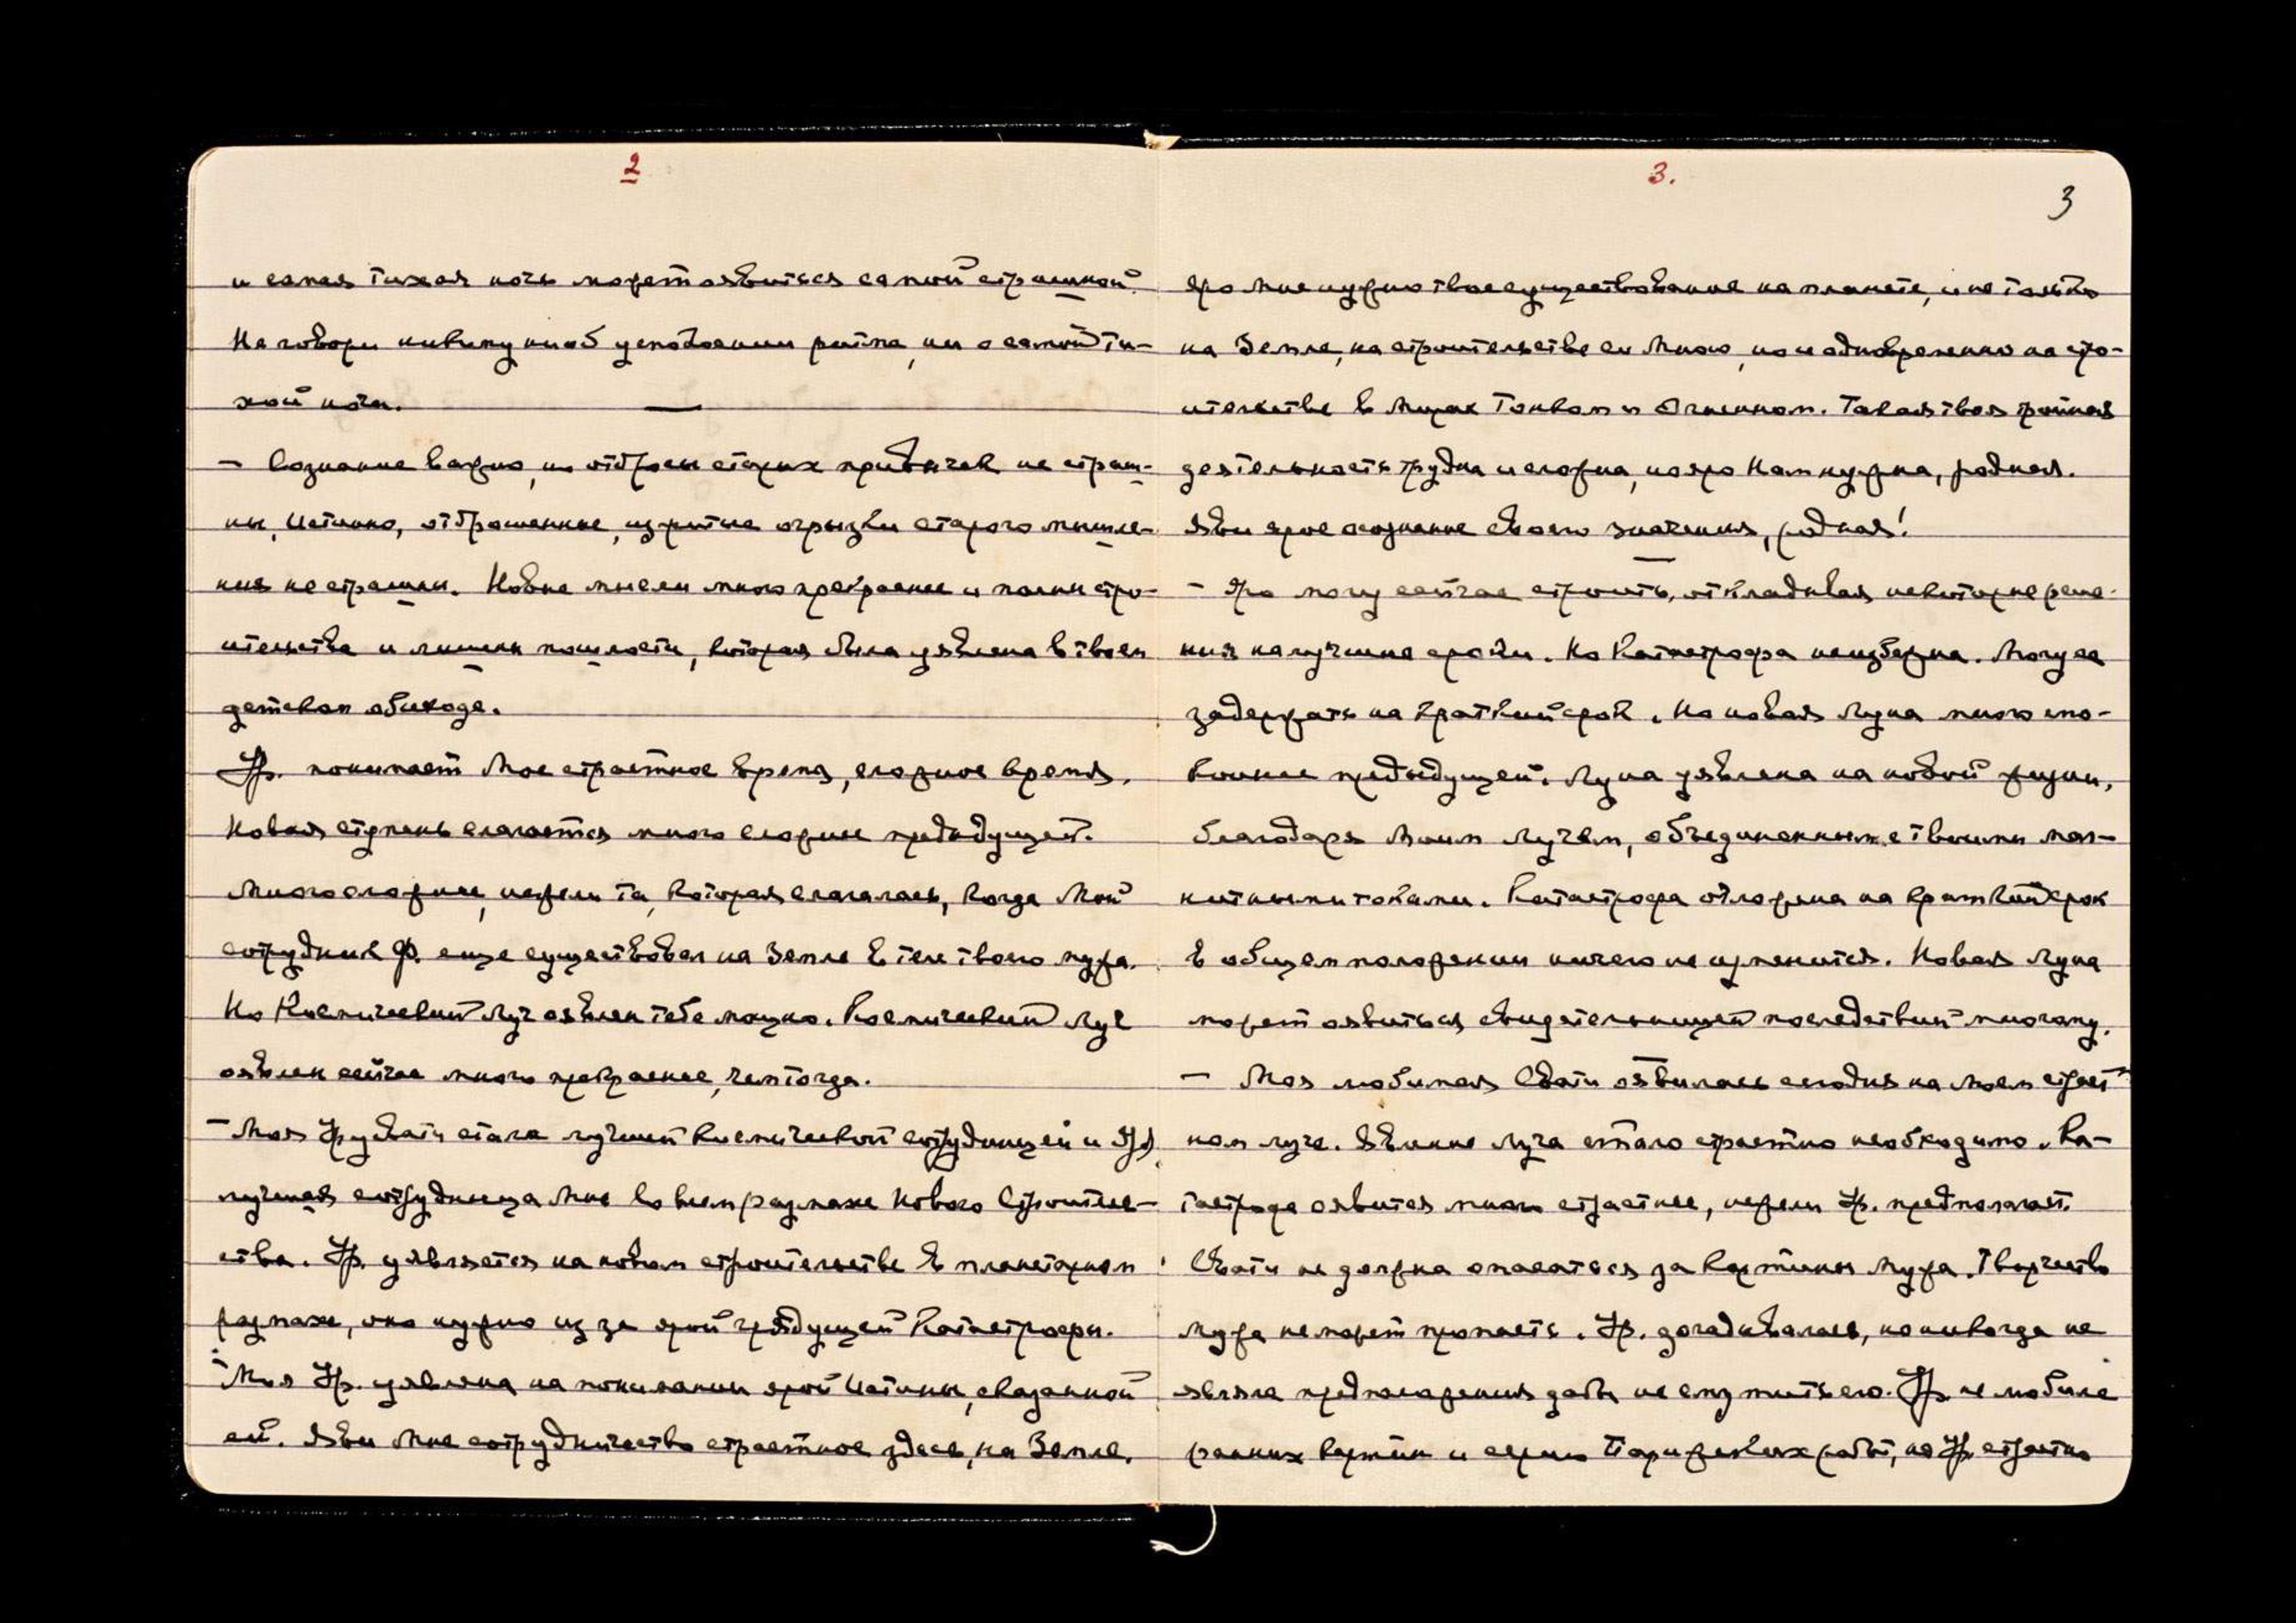 2
и самая тихая ночь может явиться самой страшной.
Не говори никому ни об успокоении ритма, ни о самой ти-
хой ночи.
— Сознание важно, но отбросы старых привычек не страш-
ны, Истинно, отброшенные, изжитые огрызки старого мышле-
ния не страшны. Новые мысли много прекраснее и полны стро-
ительства и лишены пошлости, которая была уявлена в твоем
детском обиходе.
Ур. понимает Мое страстное время, сложное время.
Новая ступень слагается много сложнее предыдущей.
Много сложнее, нежели та, которая слагалась, когда Мой
сотрудник Ф. еще существовал на Земле в теле твоего мужа.
Но Космический Луч явлен тебе мощно. Космический Луч
явлен сейчас много прекраснее, чем тогда.
— Моя Урусвати стала лучшей космической сотрудницей и Ур.
лучшая сотрудница Мне во всем размахе Нового Строитель-
ства. Ур. уявляется на новом строительстве в планетарном
размахе, оно нужно из за ярой грядущей Катастрофы.
— Моя Ур. уявлена на понимании ярой Истины, сказанной
ей. Яви Мне сотрудничество страстное здесь, на Земле.
3.
3
Яро мне нужно твое существование на планете, и не только
на Земле, на строительстве со Мною, но и одновременно на стро-
ительстве в Мирах Тонком и Огненном. Такая твоя тройная
деятельность трудна и сложна, но яро Нам нужна, родная.
Яви ярое осознание своего значения, родная!
— Яро могу сейчас строить, откладывая некоторые реше-
ния на лучшие сроки. Но Катастрофа неизбежна. Могу ее
задержать на краткий срок. Но новая Луна много спо-
койнее предыдущей. Луна уявлена на новой жизни,
благодаря Моим Лучам, объединенным с твоими маг-
нитными токами. Катастрофа отложена на краткий срок
в общем положении ничего не изменится. Новая Луна
может явиться свидетельницей последствий многому.
— Моя любимая Свати явилась сегодня на моем страст-
ном луче. Явление Луча стало страстно необходимо. Ка-
тастрофа явится много страстнее, нежели Ур. предполагает.
Свати не должна опасаться за картины Мужа. Творчество
мужа не может пропасть. Ур. догадывалась, но никогда не
являла предположения дабы не смутить его. Ур. не любила
ранних картин и серию Парижских работ, но Ур. страстно